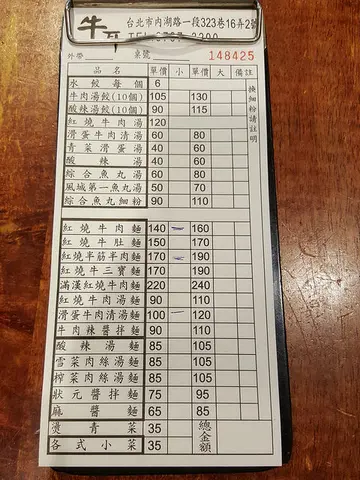 牛
台北市內湖路一段323巷16弄2號
外帶 桌號 148425
品名 單價 小 單價 大 備註
水餃每個 6
牛肉湯餃(10個) 105 130
酸辣湯餃(10個) 90 115
紅燒牛肉湯 120
滑蛋牛肉清湯 60 80
青菜滑蛋湯 40 60
酸辣湯 40 60
綜合魚丸湯 60 80
風城第一魚丸湯 50 70
綜合魚丸細粉 90 110
換細粉請註明
紅燒牛肉麵 140 160
紅燒牛肚麵 150 170
紅燒半筋半肉麵 170 190
紅燒牛三寶麵 170 190
滿漢紅燒牛肉麵 220 240
紅燒牛肉湯麵 90 110
滑蛋牛肉清湯麵 100 120
牛肉辣醬拌麵 90 110
酸辣湯麵 85 105
雪菜肉絲湯麵 85 105
榨菜肉絲湯麵 85 105
狀元醬拌麵 75 95
麻醬麵 65 85
燙青菜 35
各式小菜 35
總金額